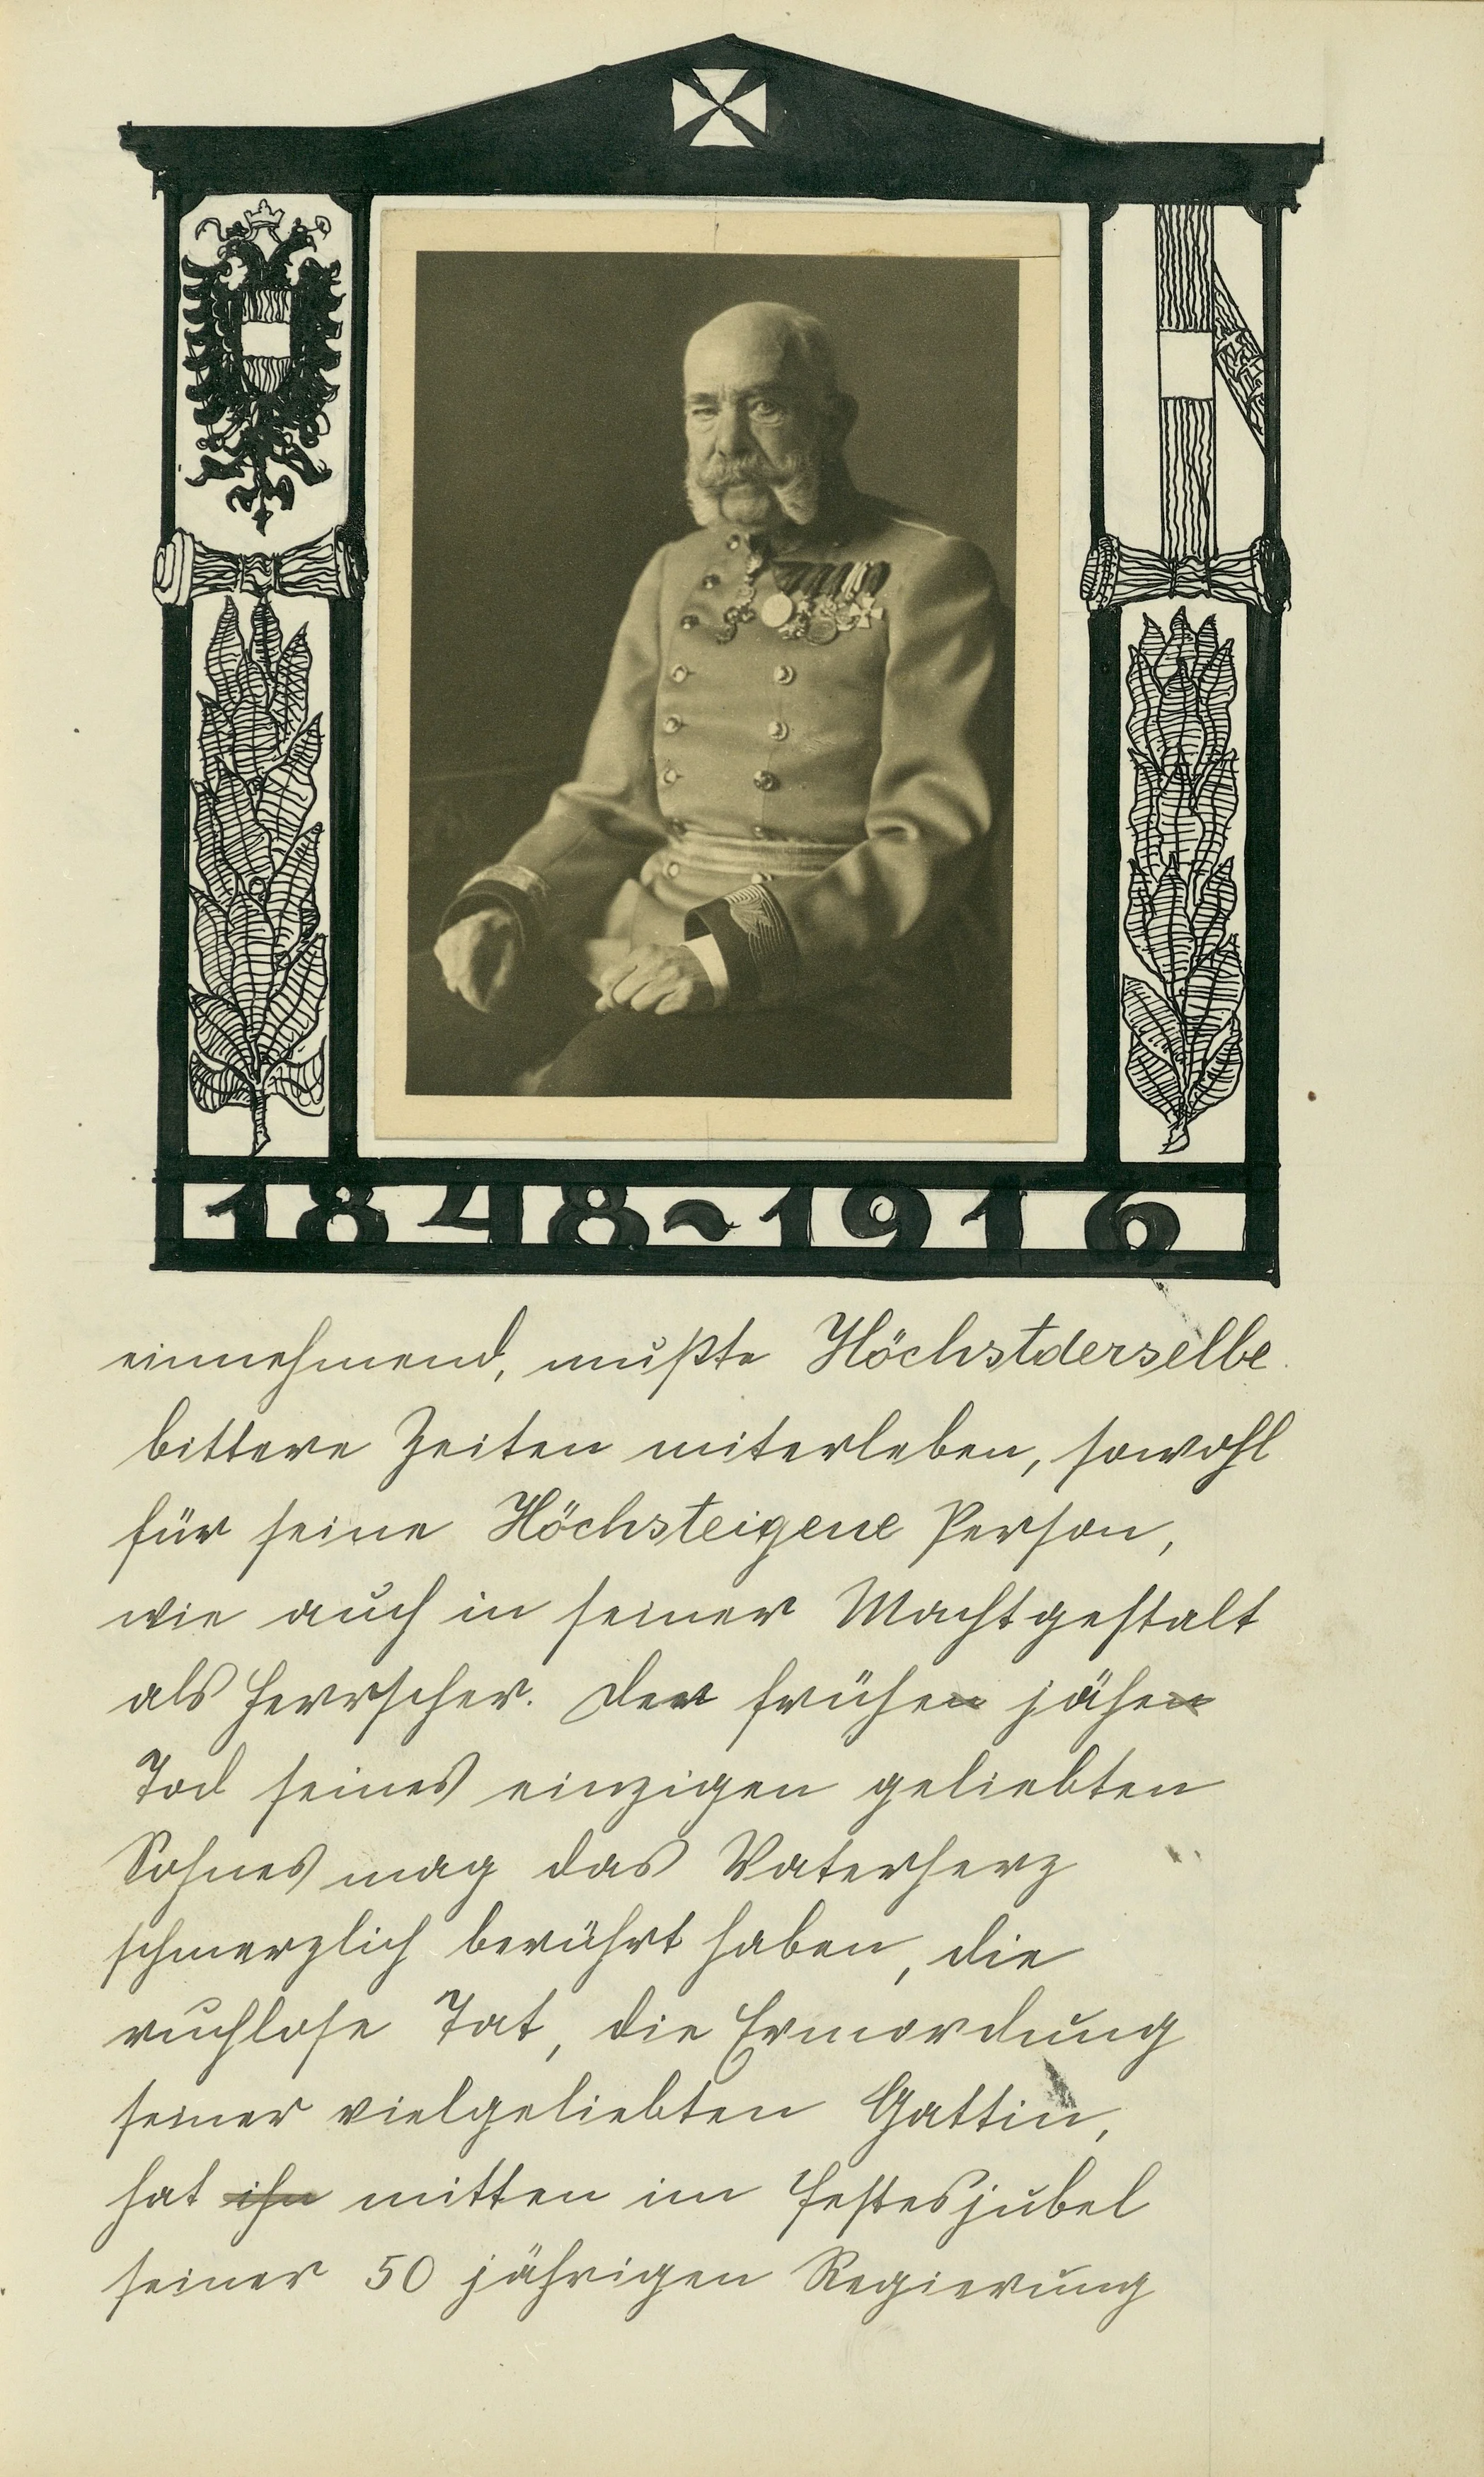 1848~1916
einnehmend, mußte Höchstderselbe
bittere Zeiten miterleben, sowohl
für seine Höchsteigene Person,
wie auch in seiner Machtgestalt
als Herrscher. Der frühe jähe
Tod seines einzigen geliebten
Sohnes mag das Vaterherz
schmerzlich berührt haben, die
ruchlose Tat, die Ermordung
seiner vielgeliebten Gattin,
hat ihn mitten im Festesjubel
seiner 50 jährigen Regierung